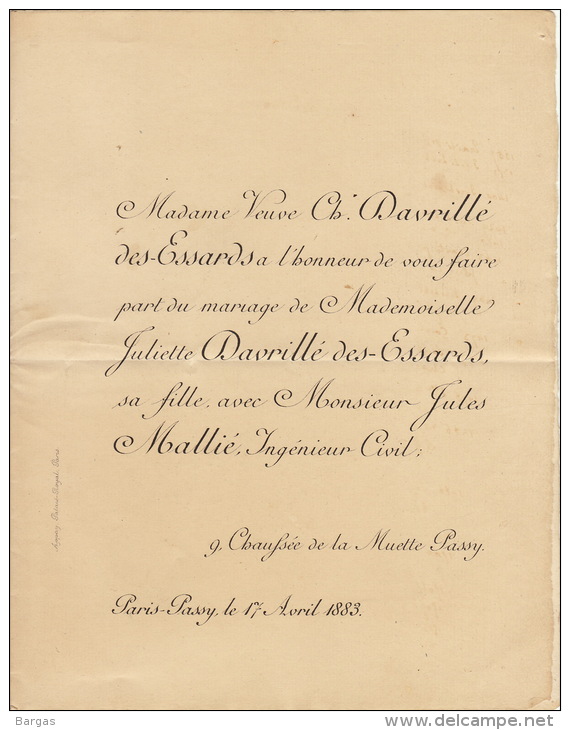 Madame Veuve Ch. Davrillé
des-Essards a l'honneur de vous faire
part du mariage de Mademoiselle
Juliette Davrillé des-Essards,
sa fille, avec Monsieur Jules
Mallié, Ingénieur Civil;
9, Chaussée de la Muette Passy.
Paris-Passy, le 17 Avril 1883.
Bargas
www.delcampe.net